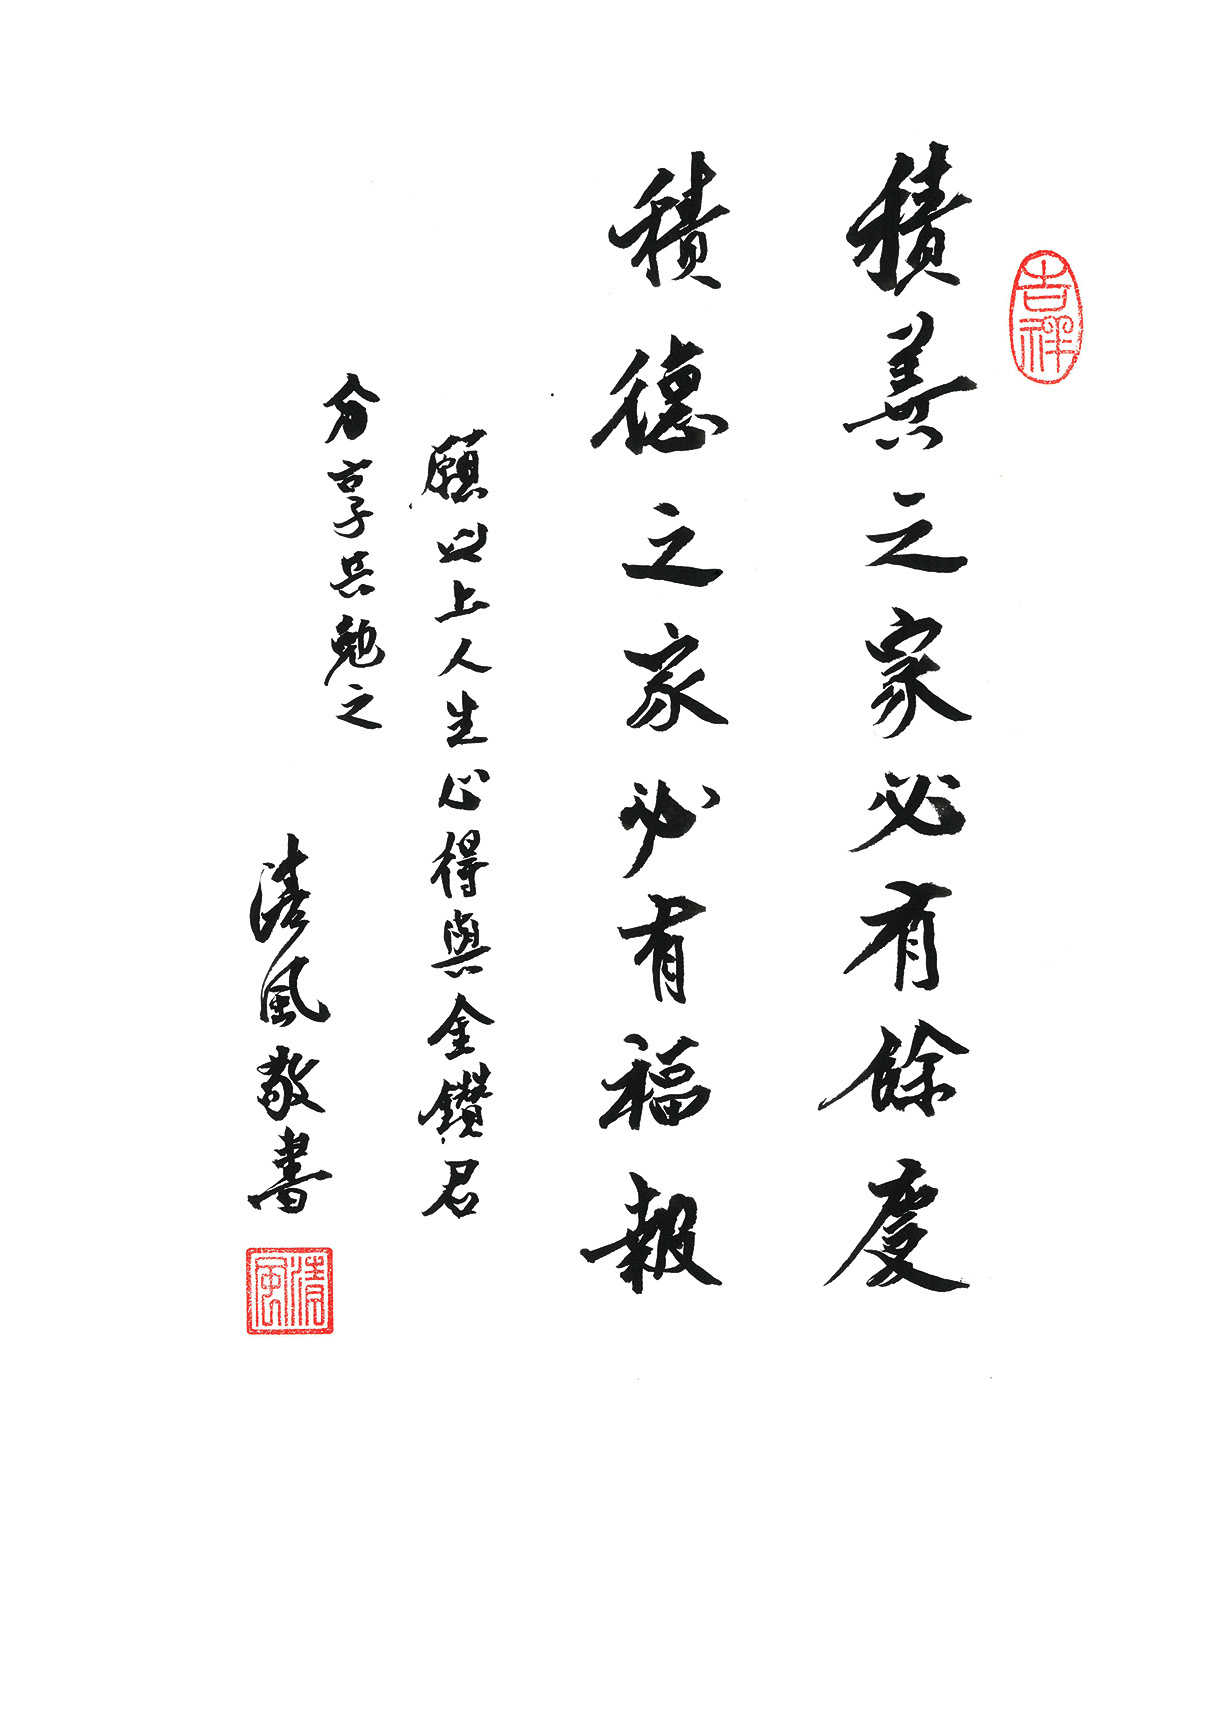 吉祥
積善之家必有餘慶
積德之家必有福報
願以上人生心得與金鑽君
分享共勉之
淩風敬書
淩風